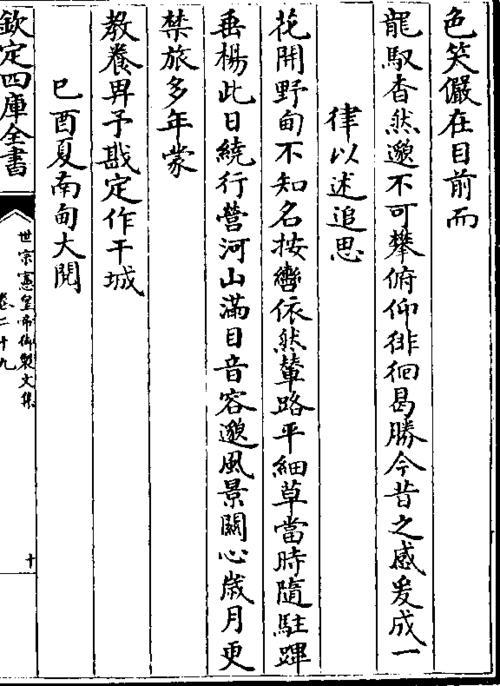 色笑儼在目前而
龍馭杳然邈不可攀俯仰徘徊曷勝今昔之感爰成一
律以述追思
花開野甸不知名按轡依然輦路平細草當時隨駐蹕
垂楊此日繞行營河山滿目音容邈風景關心歲月更
禁旅多年蒙
教養畀予戡定作干城
巳酉夏南甸大閱
欽定四庫全書
世宗憲皇帝御製文集
卷二十九
十